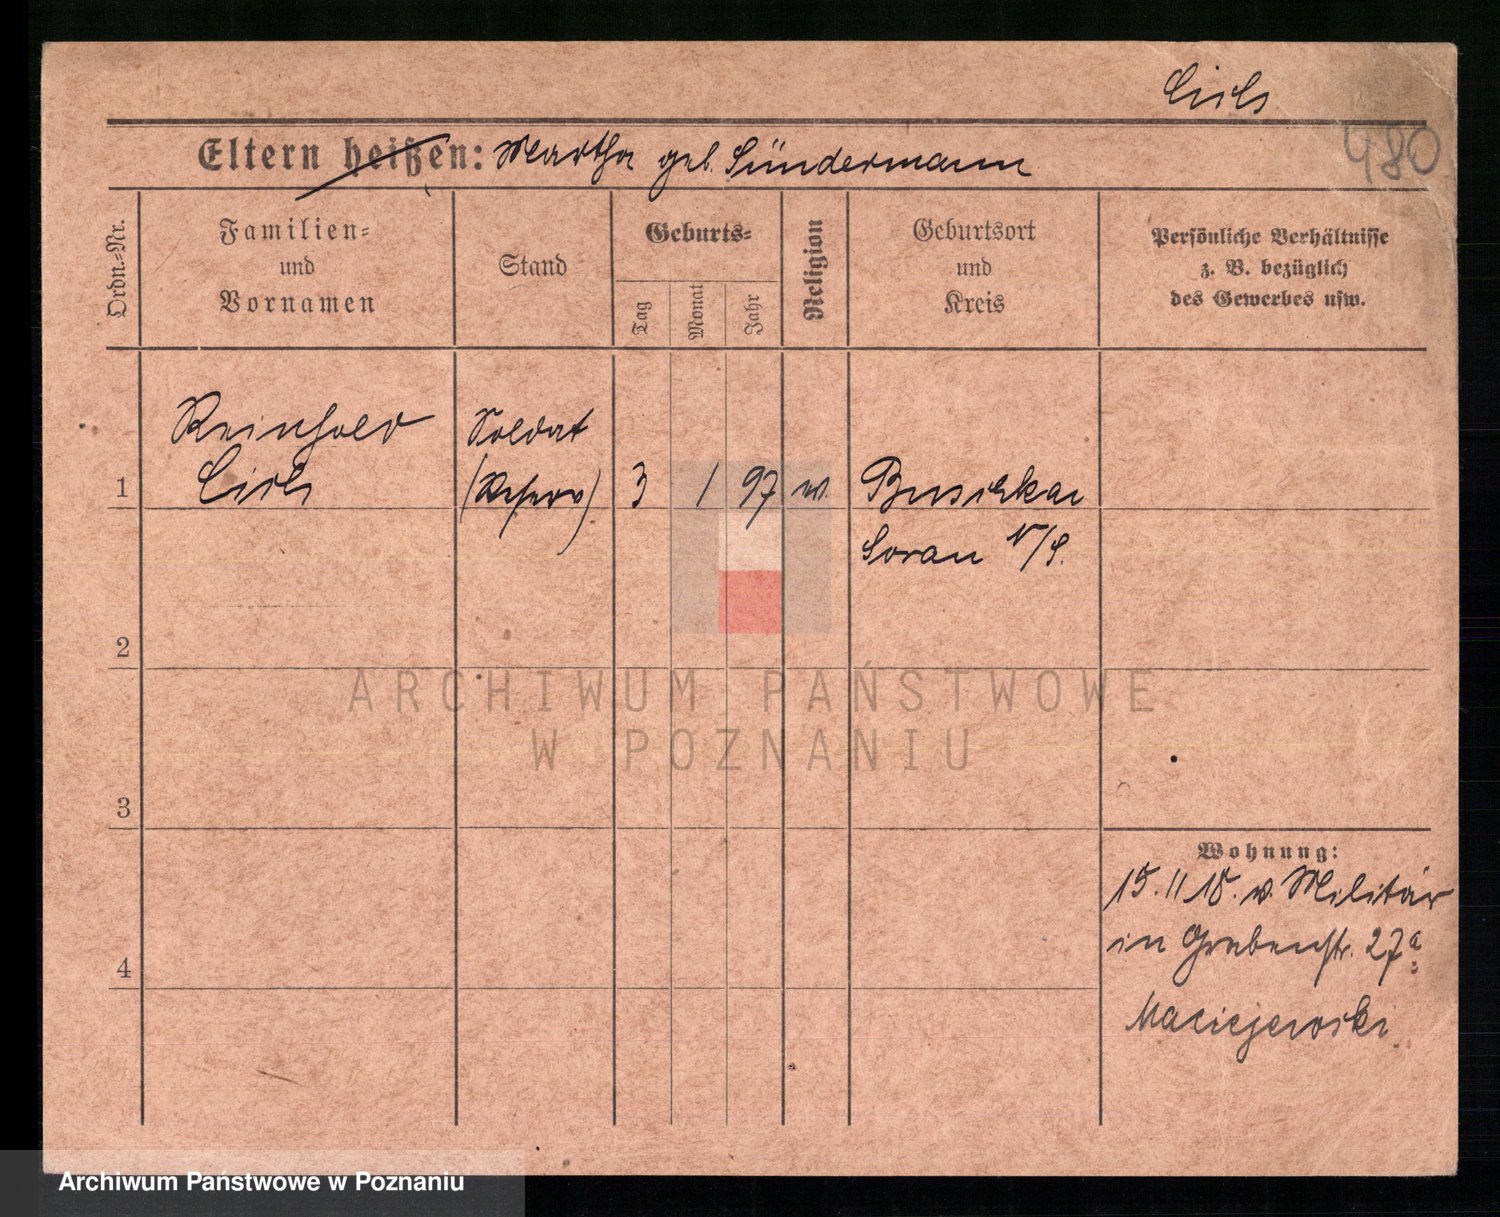 480
Eltern heißen: Martha geb. Sündermann
Ordn.-Nr.
Familien-
und
Vornamen
Stand
Geburts-
Tag
Monat
Jahr
Religion
Geburtsort
und
Kreis
Persönliche Verhältnisse
z. B. bezüglich
des Gewerbes usw.
Reinhold
Soldat
1
3 1 97
Sorau N/L.
2
3
4
Wohnung:
v. Militär
in Grabenstr. 27a
Maciejewski
ARCHIWUM PAŃSTWOWE
W POZNANIU
Archiwum Państwowe w Poznaniu